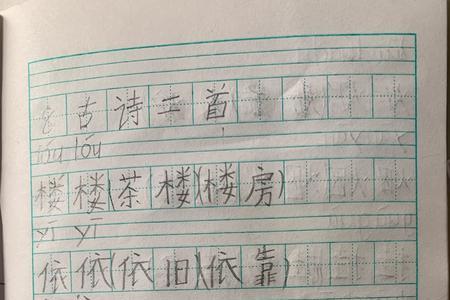 8 古诗二首
lóu lóu
楼 楼(茶楼)(楼房)
yī yī
依 依(依旧)(依靠)